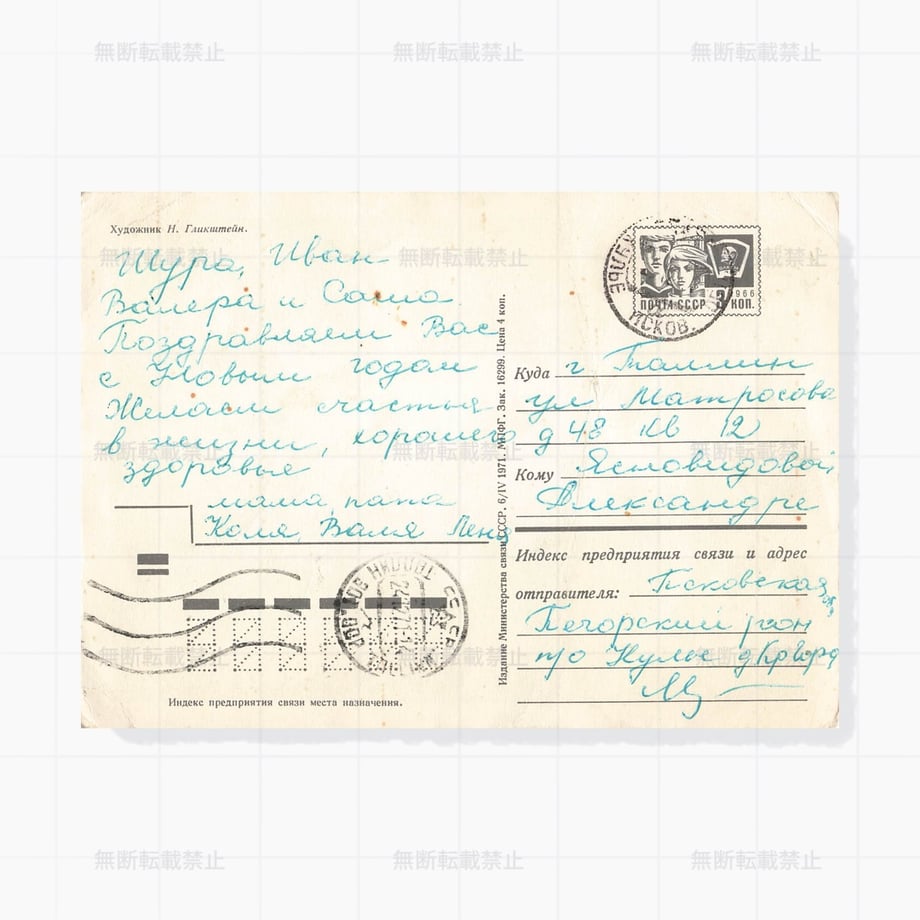 Художник Н. Гликштейн.
Шура, Иван
Валера и Саша.
Поздравляем Вас
с Новым годом
Желаем счастья
в жизни, хорошего
здоровья
мама, папа
Коля, Валя Лена
Издание Министерства связи СССР. 6/IV 1971. МПФГ. Зак. 16299. Цена 4 коп.
Индекс предприятия связи места назначения.
ПОЧТА СССР 3 КОП.
1966
ПСКОВ.
Куда г Таллин
ул Матросова
д 48 кв 12
Кому Ясновидовой
Александре
Индекс предприятия связи и адрес
отправителя: Псковская об.
Печорский район
п/о
ТАЛЛИН
СССР
無断転載禁止 無断転載禁止 無断転載禁止
無断転載禁止 無断転載禁止 無断転載禁止
無断転載禁止 無断転載禁止 無断転載禁止
無断転載禁止 無断転載禁止 無断転載禁止
無断転載禁止 無断転載禁止 無断転載禁止